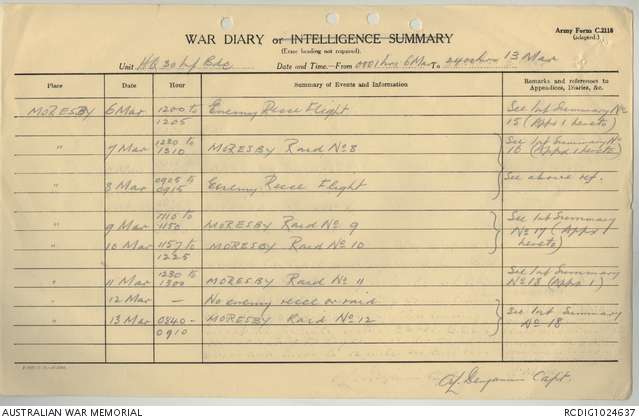 Army Form C.2118
(adapted.)
WAR DIARY or INTELLIGENCE SUMMARY
(Erase heading not required).
Unit HQ 30 Inf Bde Date and Time.—From 0001 hrs 6 Mar To 2400 hrs 13 Mar
Place Date Hour Summary of Events and Information Remarks and references to Appendices, Diaries, &c.
MORESBY 6 Mar 1200 to 1205 Enemy Recce Flight See Int Summary No 15 (Appx 1 hereto)
" 7 Mar 1230 to 1310 MORESBY Raid No 8 See Int Summary No 16 (Appx 1 hereto)
" 8 Mar 0905 to 0915 Enemy Recce Flight See above ref.
" 9 Mar 1110 to 1150 MORESBY Raid No 9 See Int Summary No 17 (Appx hereto)
" 10 Mar 1157 to 1225 MORESBY Raid No 10
" 11 Mar 1230 to 1300 MORESBY Raid No 11 See Int Summary No 18 (Appx 1)
" 12 Mar — No enemy recce or raid
" 13 Mar 0840 - 0910 MORESBY Raid No 12 See Int Summary No 18
Benjamin Capt.
AUSTRALIAN WAR MEMORIAL
RCDIG1024637